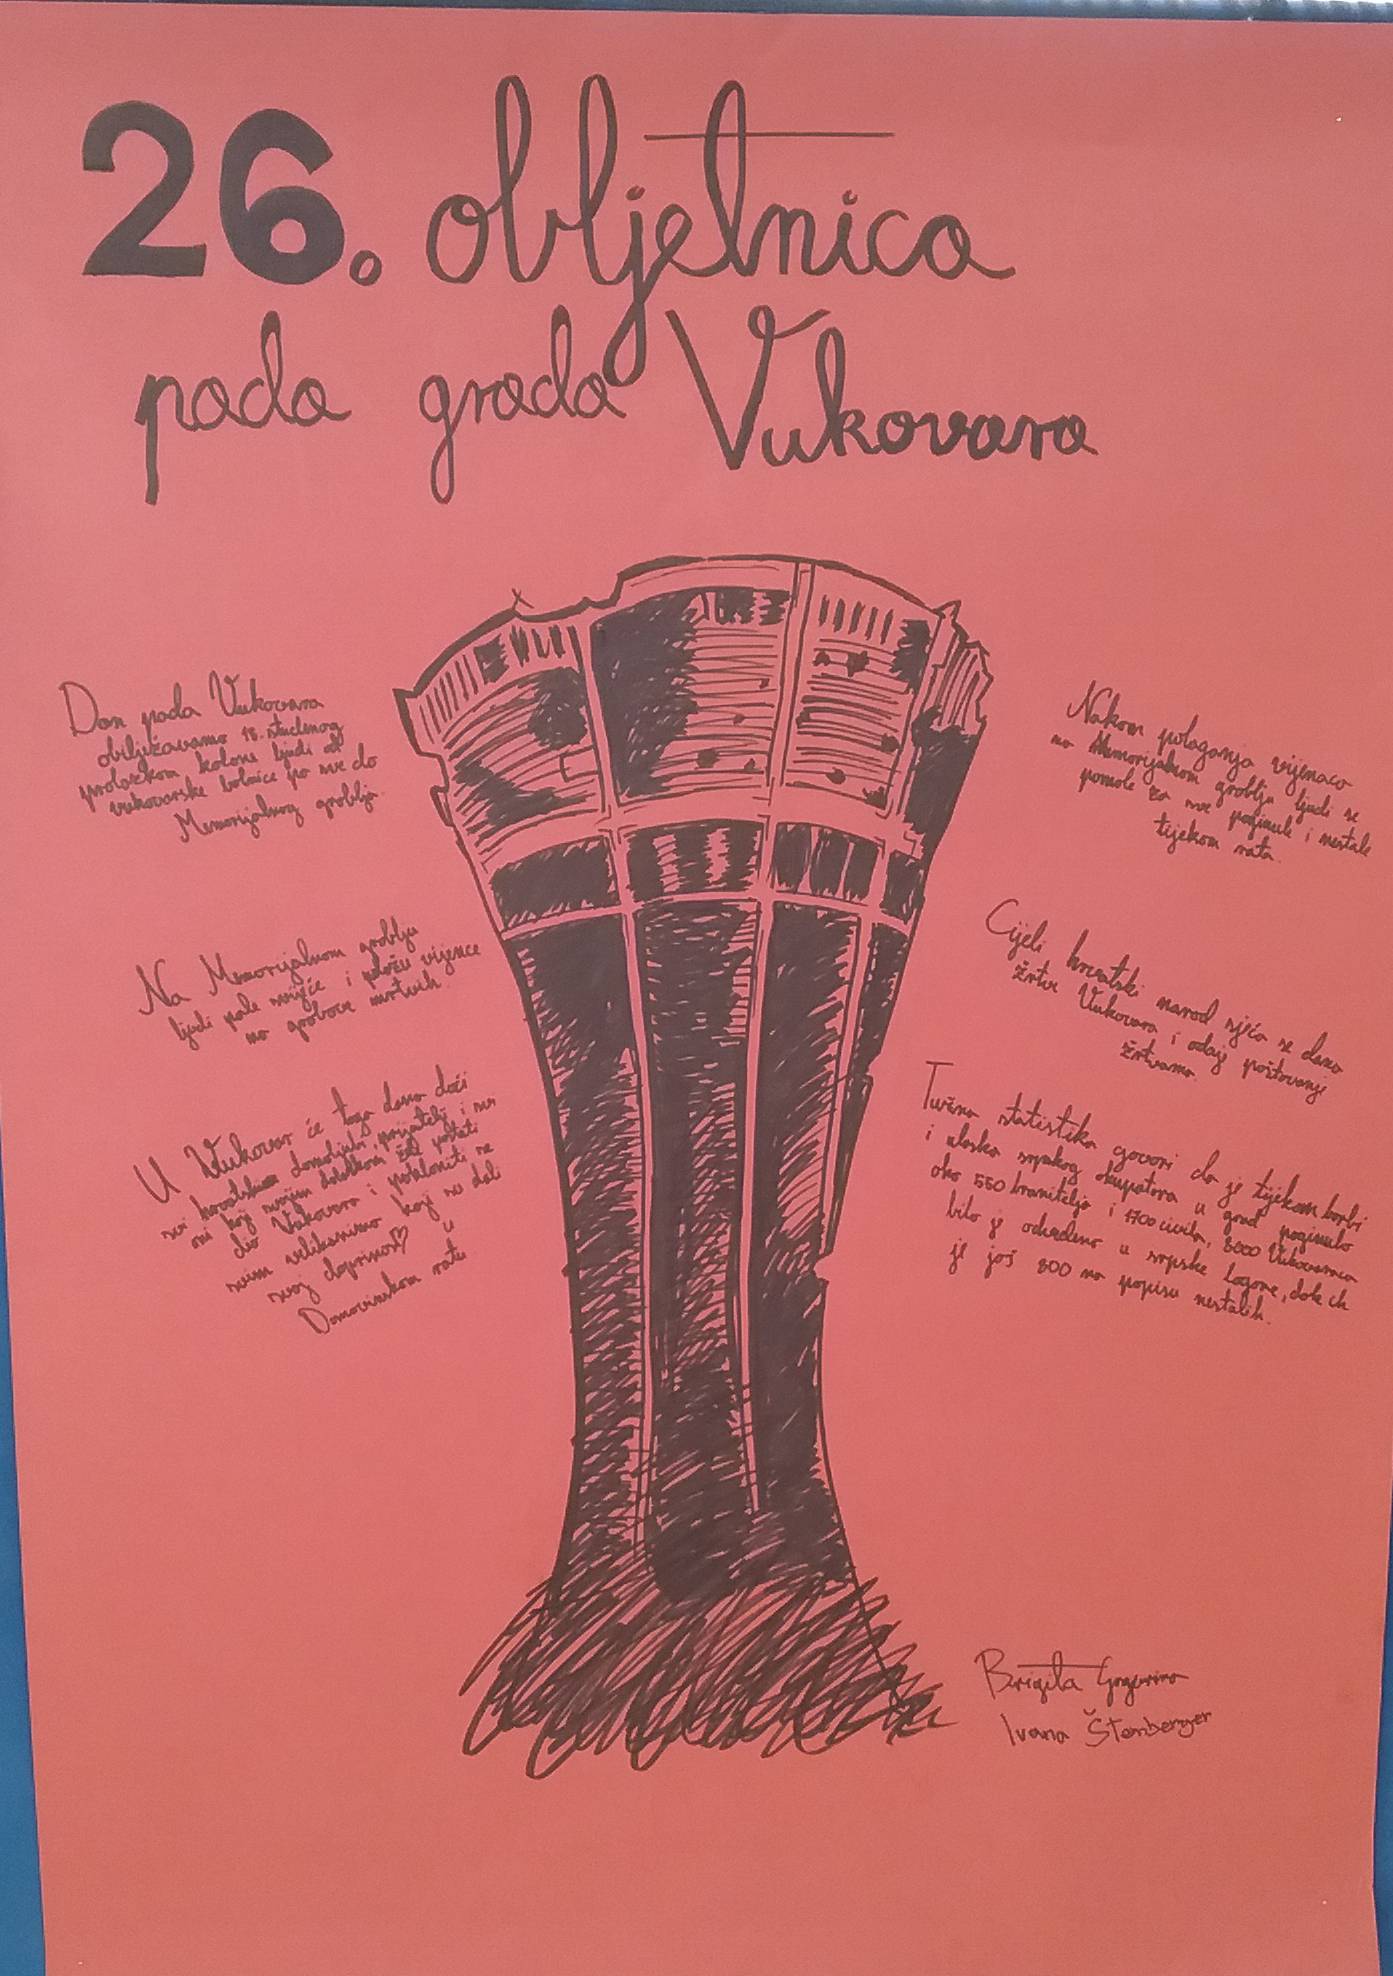 26. obljetnica
pada grada Vukovara
Dan pada Vukovara
obilježavamo 18. studenog
prolazkom kolone ljudi od
vukovarske bolnice pa sve do
Memorijalnog groblja.
Na Memorijalnom groblju
ljudi pale svijeće i polažu vijence
na grobove mrtvih.
U Vukovar će toga dana doći
svi hrvatskom domoljubi, prijatelji i svi
oni koji svojim dolaskom žele postati
dio Vukovara i pokloniti se
svim velikanima koji su dali
svoj doprinos u
Domovinskom ratu
Nakon polaganja vijenaca
na Memorijalnom groblju ljudi se
pomole za sve poginule i nestale
tijekom rata.
Cijeli hrvatski narod sjeća se dana
žrtve Vukovara i odaje poštovanje
žrtvama.
Tužna statistika govori da je tijekom borbi
i ulaska srpskog okupatora u grad poginulo
oko 550 branitelja i 1700 civila, 8000 Vukovaraca
bilo je odvedeno u srpske logore, dok ih
je još 800 na popisu nestalih.
Brigita
Ivana Štemberger